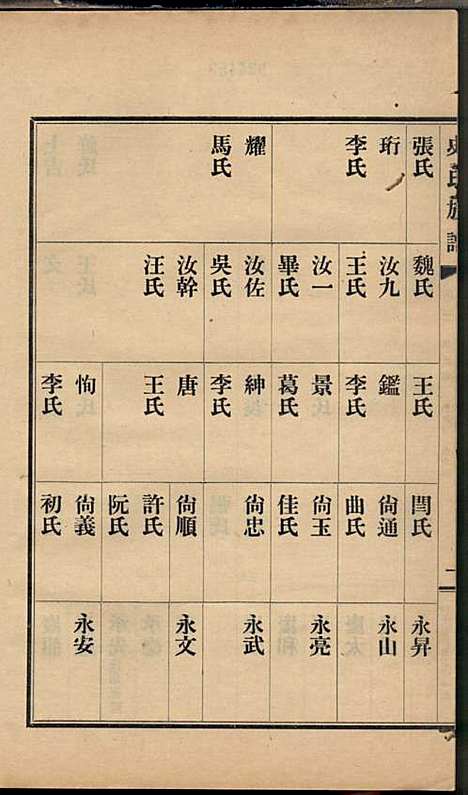 氏族譜
一
張氏 魏氏 王氏 閆氏 永昇
珩 汝九 鑑 尙通 永山
李氏 王氏 李氏 曲氏
汝一 景 尙玉 永亮
畢氏 葛氏 佳氏
耀 汝佐 紳 尙忠 永武
馬氏 吳氏 李氏
汝幹 唐 尙順 永文
汪氏 王氏 許氏
阮氏
恂 尙義 永安
李氏 初氏